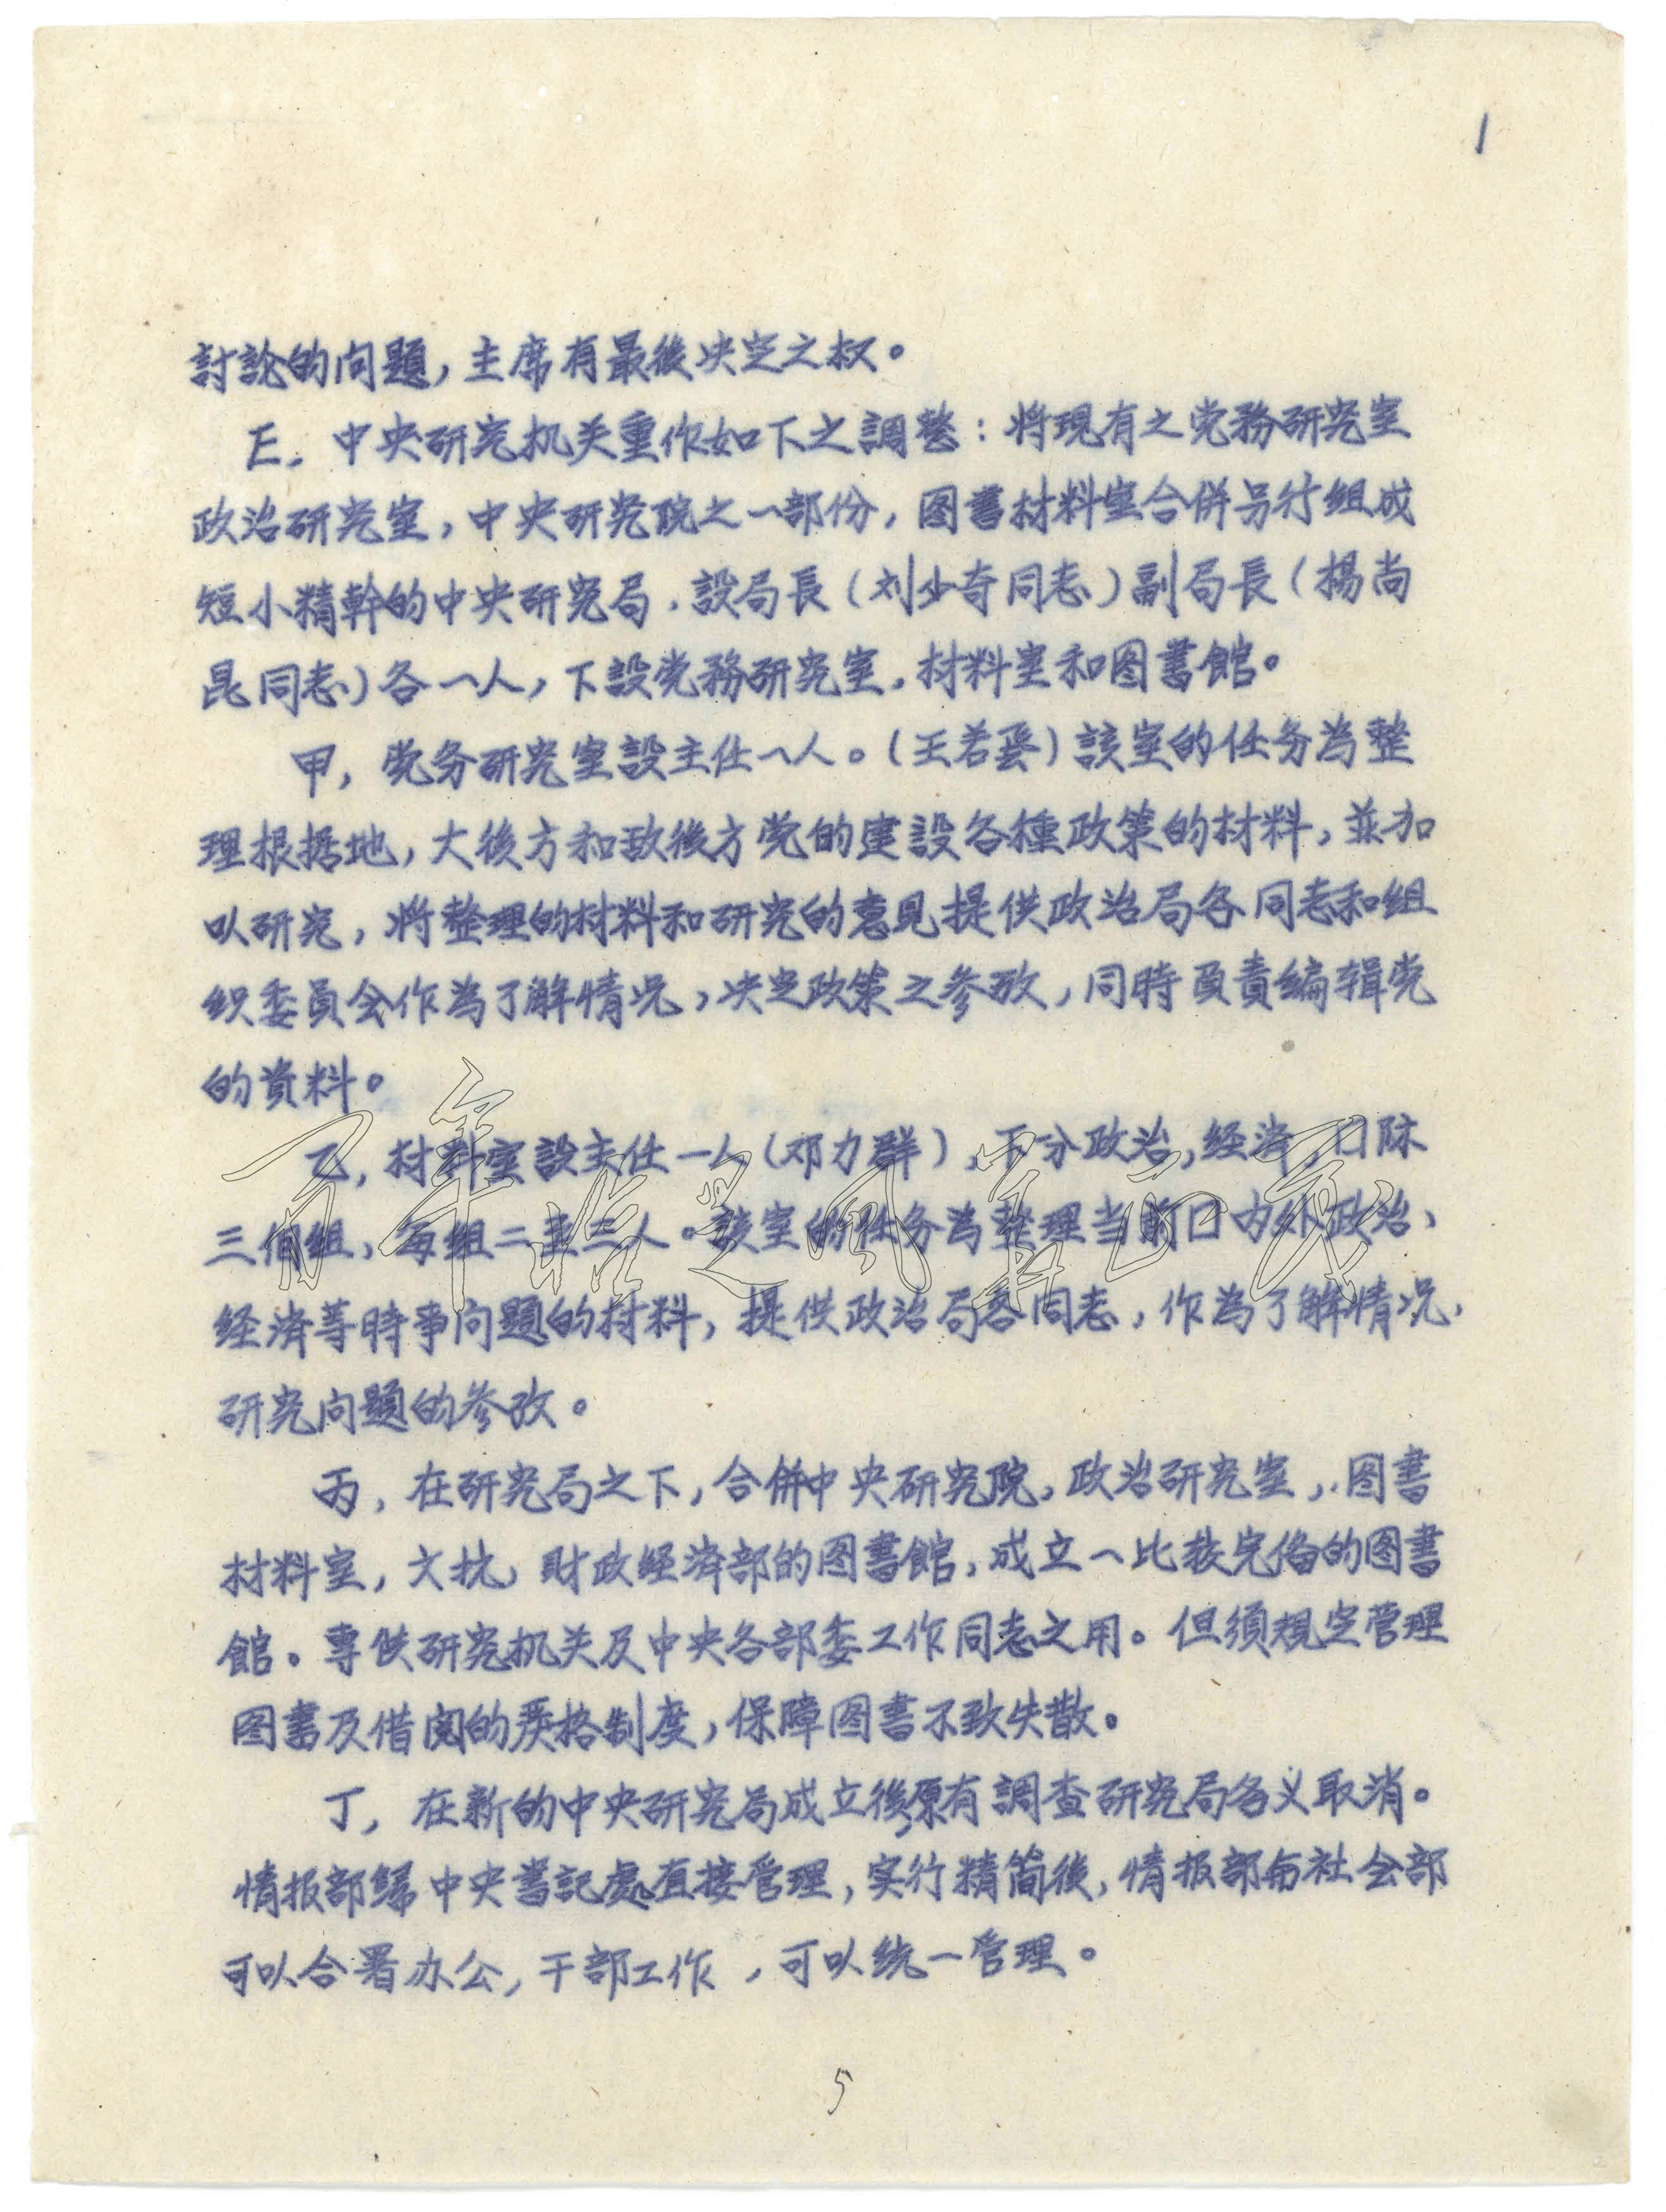 1
討論的问題，主席有最後决定之权。
E. 中央研究机关重作如下之調整：将現有之党務研究室
政治研究室，中央研究院之一部份，图書材料室合併另行组成
短小精幹的中央研究局，設局長（刘少奇同志）副局長（楊尚
昆同志）各一人，下設党務研究室，材料室和图書館。
甲，党务研究室設主任一人。（王若飛）該室的任务為整
理根据地，大後方和敌後方党的建設各種政策的材料，並加
以研究，将整理的材料和研究的意見提供政治局各同志和组
织委員会作為了解情况，决定政策之参攷，同時負責编辑党
的資料。
乙，材料室設主任一人（邓力群），下分政治，经済，囗际
三個组，每组二至三人。該室的任务為整理当前囗内外政治、
经済等時事问題的材料，提供政治局各同志，作為了解情况、
研究问題的参攷。
丙，在研究局之下，合併中央研究院，政治研究室，图書
材料室，文抗，財政经済部的图書館，成立一比較完俻的图書
館。專供研究机关及中央各部委工作同志之用。但須規定管理
图書及借阅的严格制度，保障图書不致失散。
丁，在新的中央研究局成立後，原有調查研究局名义取消。
情报部歸中央書記處直接管理，实行精简後，情报部与社会部
可以合署办公，干部工作，可以统一管理。
5